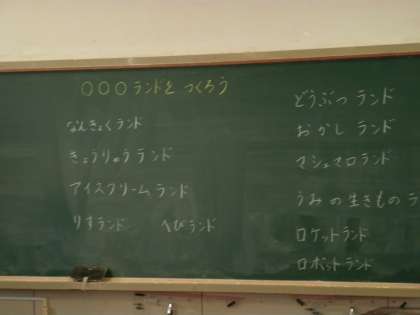 ○○○ランドを つくろう
なんきょくランド
きょうりゅうランド
アイスクリームランド
りすランド へびランド
どうぶつ ランド
おかし ランド
マシュマロランド
うみの生きもの ラ
ロケットランド
ロボットランド